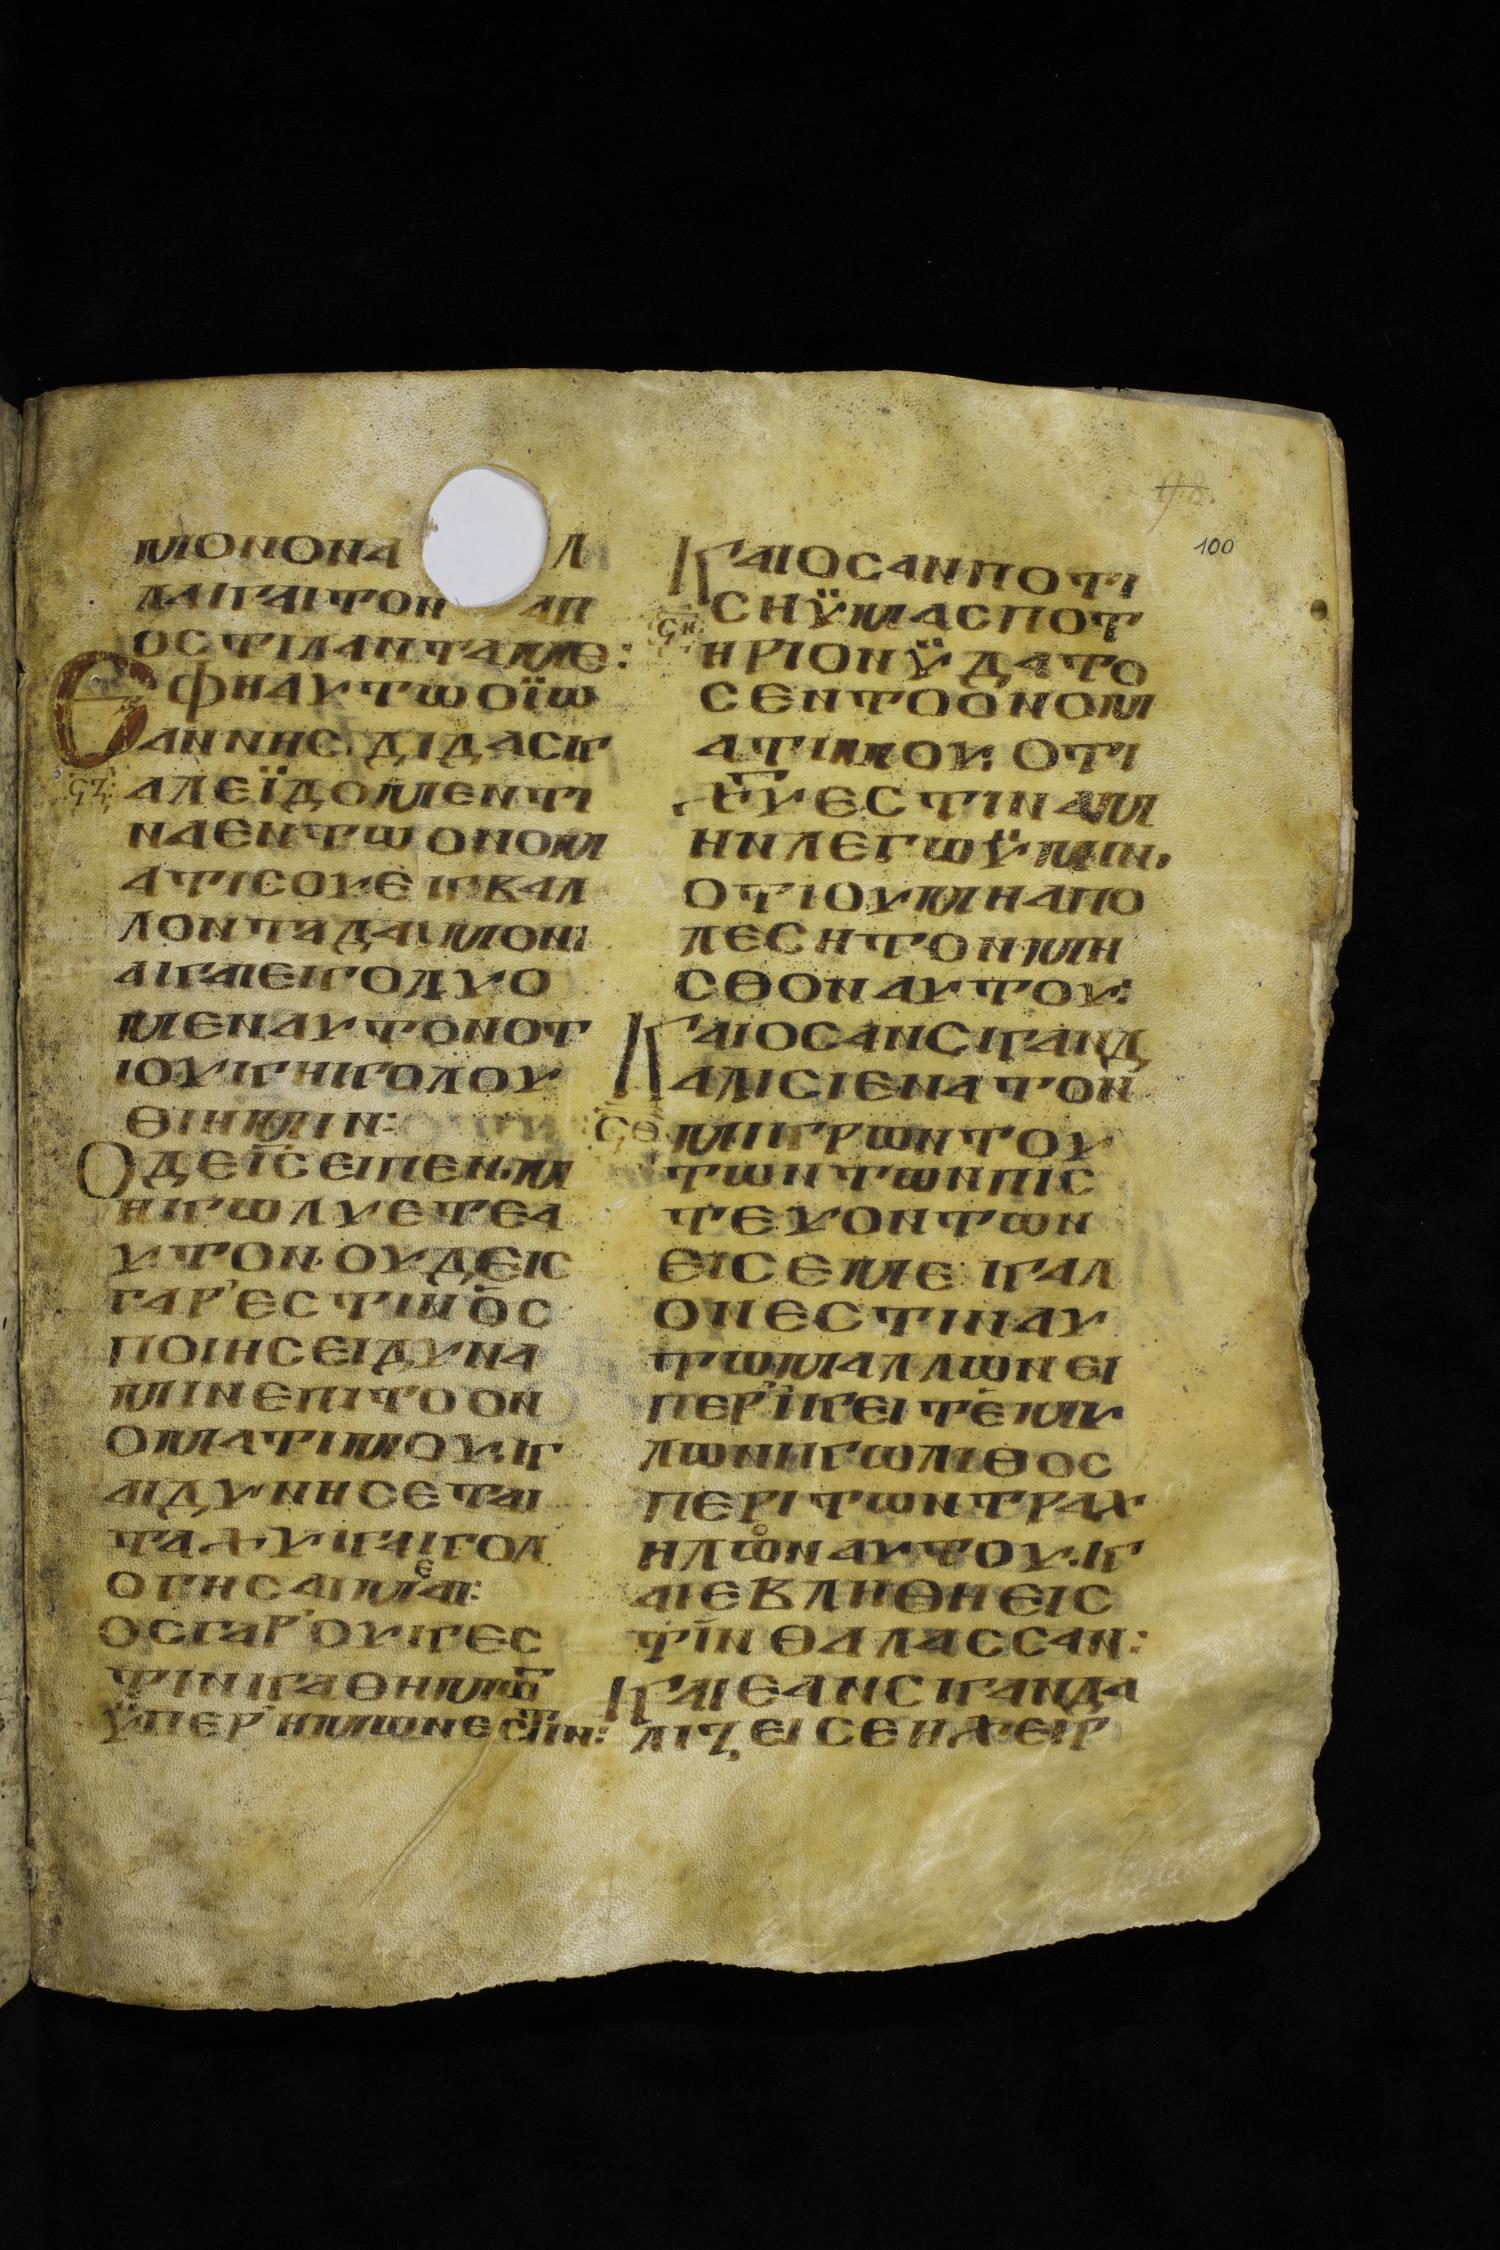 ΜΟΝΟΝΑ Λ
ΛΑΙΚΑΙΤΟΝ ΑΠ
ΟСΤΙΛΑΝΤΑΜΕ:
ΕΦΗΑΥΤΩΟΪΩ
ΑΝΝΗС ΔΙΔΑСΚ
ϚΖ ΑΛΕΪΔΟΜΕΝΤΙ
ΝΑΕΝΤΩΟΝΟΜ
ΑΤΙСΟΥΕΚΒΑΛ
ΛΟΝΤΑΔΑΙΜΟΝΙ
ΑΙΚΑΙΕΚΟΛΥΟ
ΜΕΝΑΥΤΟΝΟΤ
ΙΟΥΚΗΚΟΛΟΥ
ΘΙΗΜΙΝ:
ΟΔΕΙ̅С̅ΕΙΠΕΝ·Μ
ΗΚΩΛΥΕΤΕΑ
ΥΤΟΝ·ΟΥΔΕΙС
ΓΑΡ'ΕСΤΙΝΟС
ΠΟΙΗСΕΙΔΥΝΑ
ΜΙΝΕΠΙΤΟΟΝ
ΟΜΑΤΙΜΟΥ·Κ
ΑΙΔΥΝΗСΕΤΑΙ
ΤΑΧΥΚΑΙΚΟΛ
ΟΓΗСΑΙΜΕΑΙ:
ΟСΓΑΡ'ΟΥΚΕС
ΤΙΝΚΑΘΗΜΩ
ΫΠΕΡ'ΗΜΩΝΕСΤΙΝ:
ΚΑΙΟСΑΝΠΟΤΙ
ϚΗ СΗΫΜΑСΠΟΤ
ΗΡΙΟΝΫΔΑΤΟ
СΕΝΤΟΟΝΟΜ
ΑΤΙΜΟΥ· ΟΤΙ
Χ̅Υ̅ΕСΤΙΝΑΜ
ΗΝΛΕΓΩΫΜΙΝ·
ΟΤΙΟΥΜΗΑΠΟ
ΛΕСΗΤΟΝΜΗ
СΘΟΝΑΥΤΟΥ:
ΚΑΙΟСΑΝСΚΑΝΔ
ΑΛΙСΙΕΝΑΤΟΝ
ϚΘ ΜΙΚΡΩΝΤΟΥ
ΤΩΝΤΩΝΠΙС
ΤΕΥΟΝΤΩΝ
ΕΙСΕΜΕ· ΚΑΛ
ΟΝΕСΤΙΝΑΥ
ΤΩΜΑΛΛΩΝΕΙ
ΠΕΡ'ΙΚΕΙΤΕΜΥ
ΛΩΝΗΚΩΛΙΘΟС
ΠΕΡΙΤΩΝΤΡΑΧ
ΗΛΩΝΑΥΤΟΥ·Κ
ΑΙΕΒΛΗΘΗΕΙС
ΤΙΝΘΑΛΑССΑΝ:
ΚΑΙΕΑΝСΚΑΝΔΑ
ΛΙΖΕΙСΕΗΧΕΙΡ
100